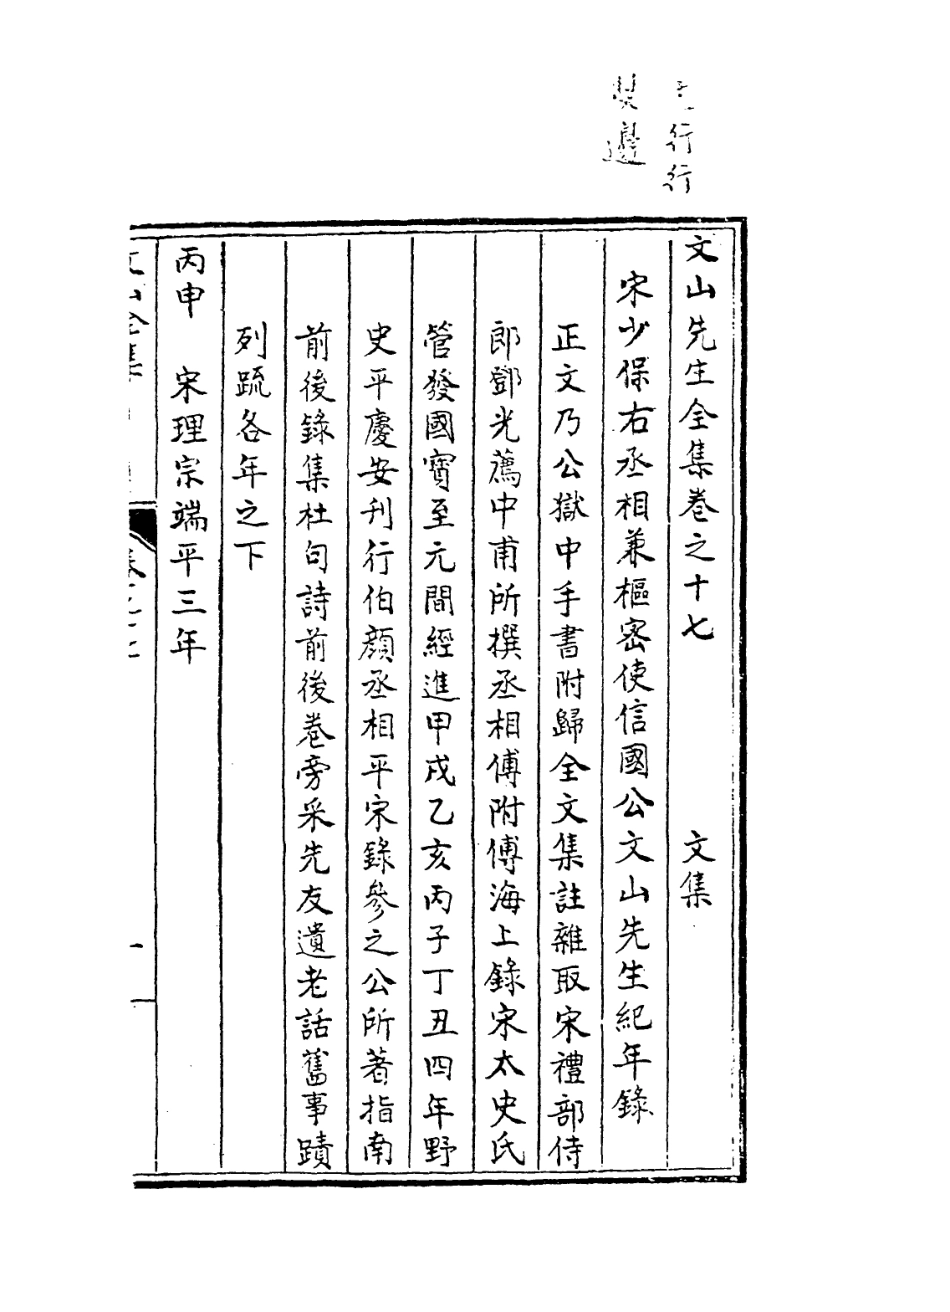 文山先生全集卷之十七　文集
宋少保右丞相兼樞密使信國公文山先生紀年錄
正文乃公獄中手書附歸全文集註雜取宋禮部侍
郎鄧光薦中甫所撰丞相傳附傳海上錄宋太史氏
管發國寶至元間經進甲戌乙亥丙子丁丑四年野
史平慶安刊行伯顏丞相平宋錄參之公所著指南
前後錄集杜句詩前後卷旁采先友遺老話舊事蹟
列疏各年之下
丙申　宋理宗端平三年
行行
邊